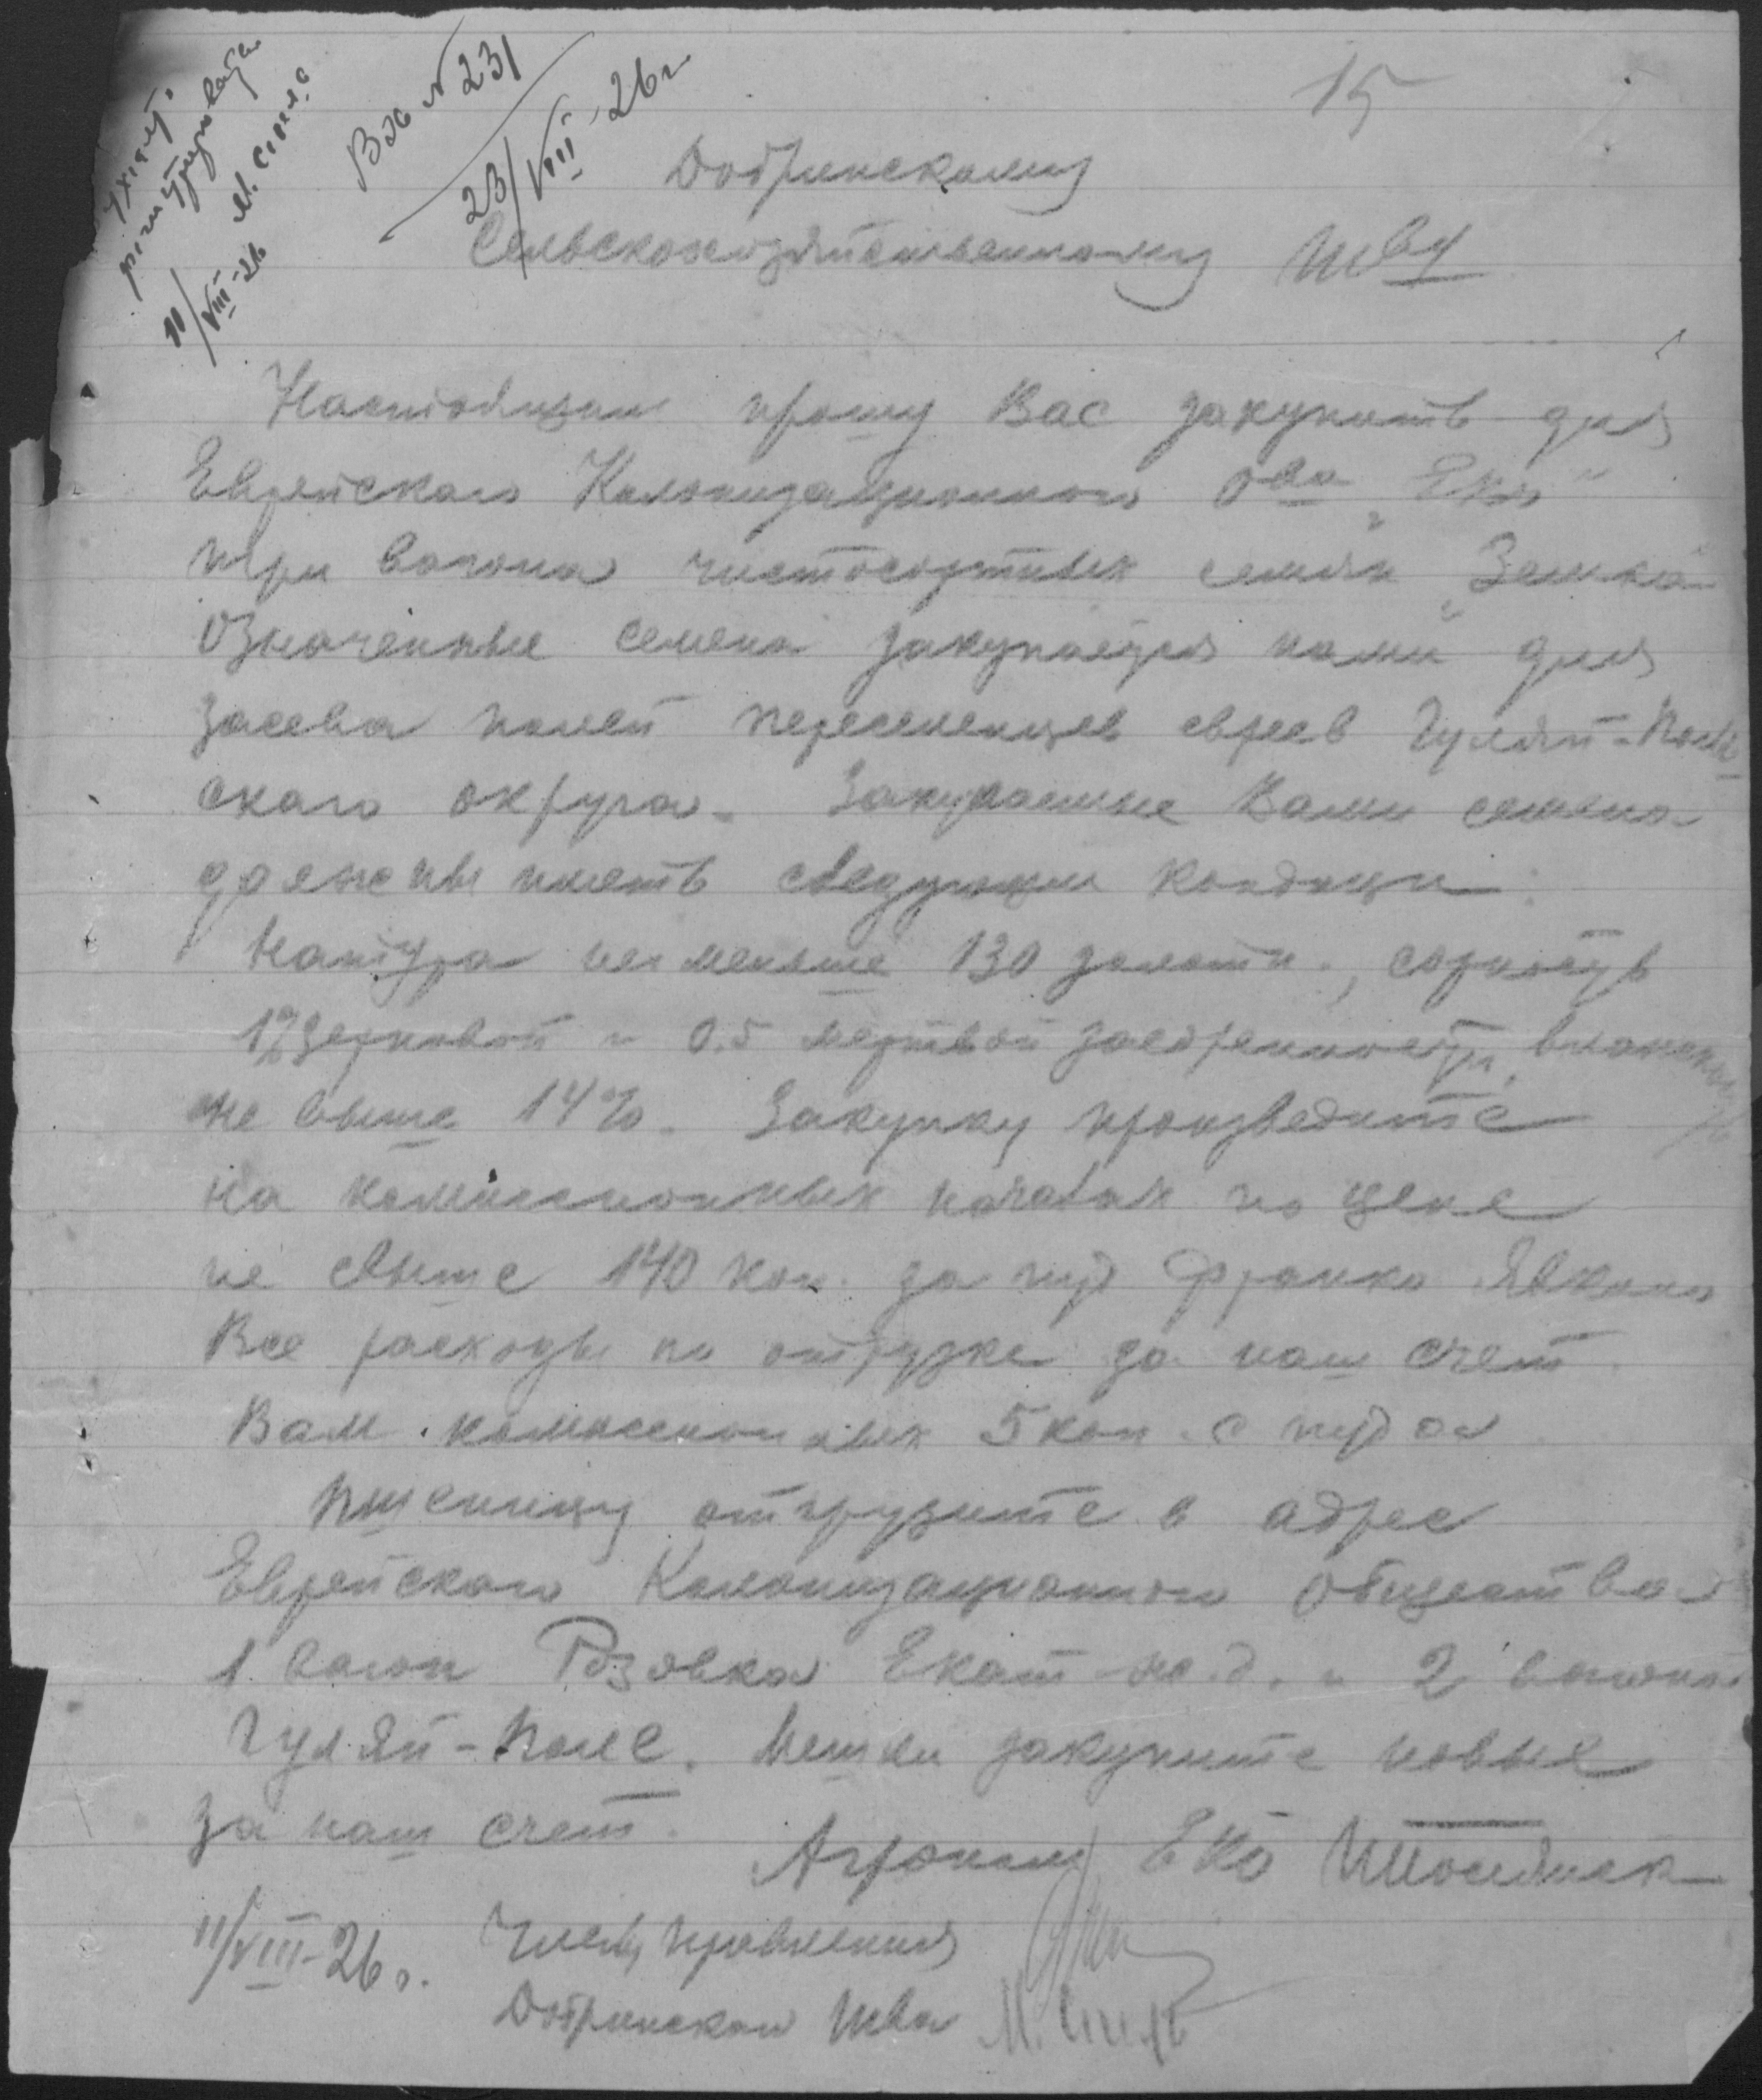 Вх № 231
23/VIII-26 г
11/VIII-26
15
Добринскому
Сельскохозяйственному Т-ву
Настоящим прошу Вас закупить для
Еврейского Колонизационного О-ва „Еко"
три вагона чистосортных семян „Земка"
Означенные семена закупается нами для
засева полей переселенцев евреев Гуляй-Поль-
ского округа. Закупаемые Вами семена
должны иметь следующии кондиции:
Натура не меньше 130 золотн., сорность
1% зерновой и 0.5 мертвой засоренности, влажность
не выше 14%. Закупку произведите
на комиссионных началах по цене
не свыше 140 коп. за пуд франко Явкино
Все расходы по отгрузке за наш счет.
Вам комиссионных 5 коп. с пуда
Пшеницу отгрузите в адрес
Еврейского Колонизационного Общества
1 вагон Розовка Екат ж.д. и 2 вагона
Гуляй-Поле. Мешки закупите новые
за наш счет.
Агроном ЕКО
11/VIII-26 г. Члены правления
Добринского Т-ва